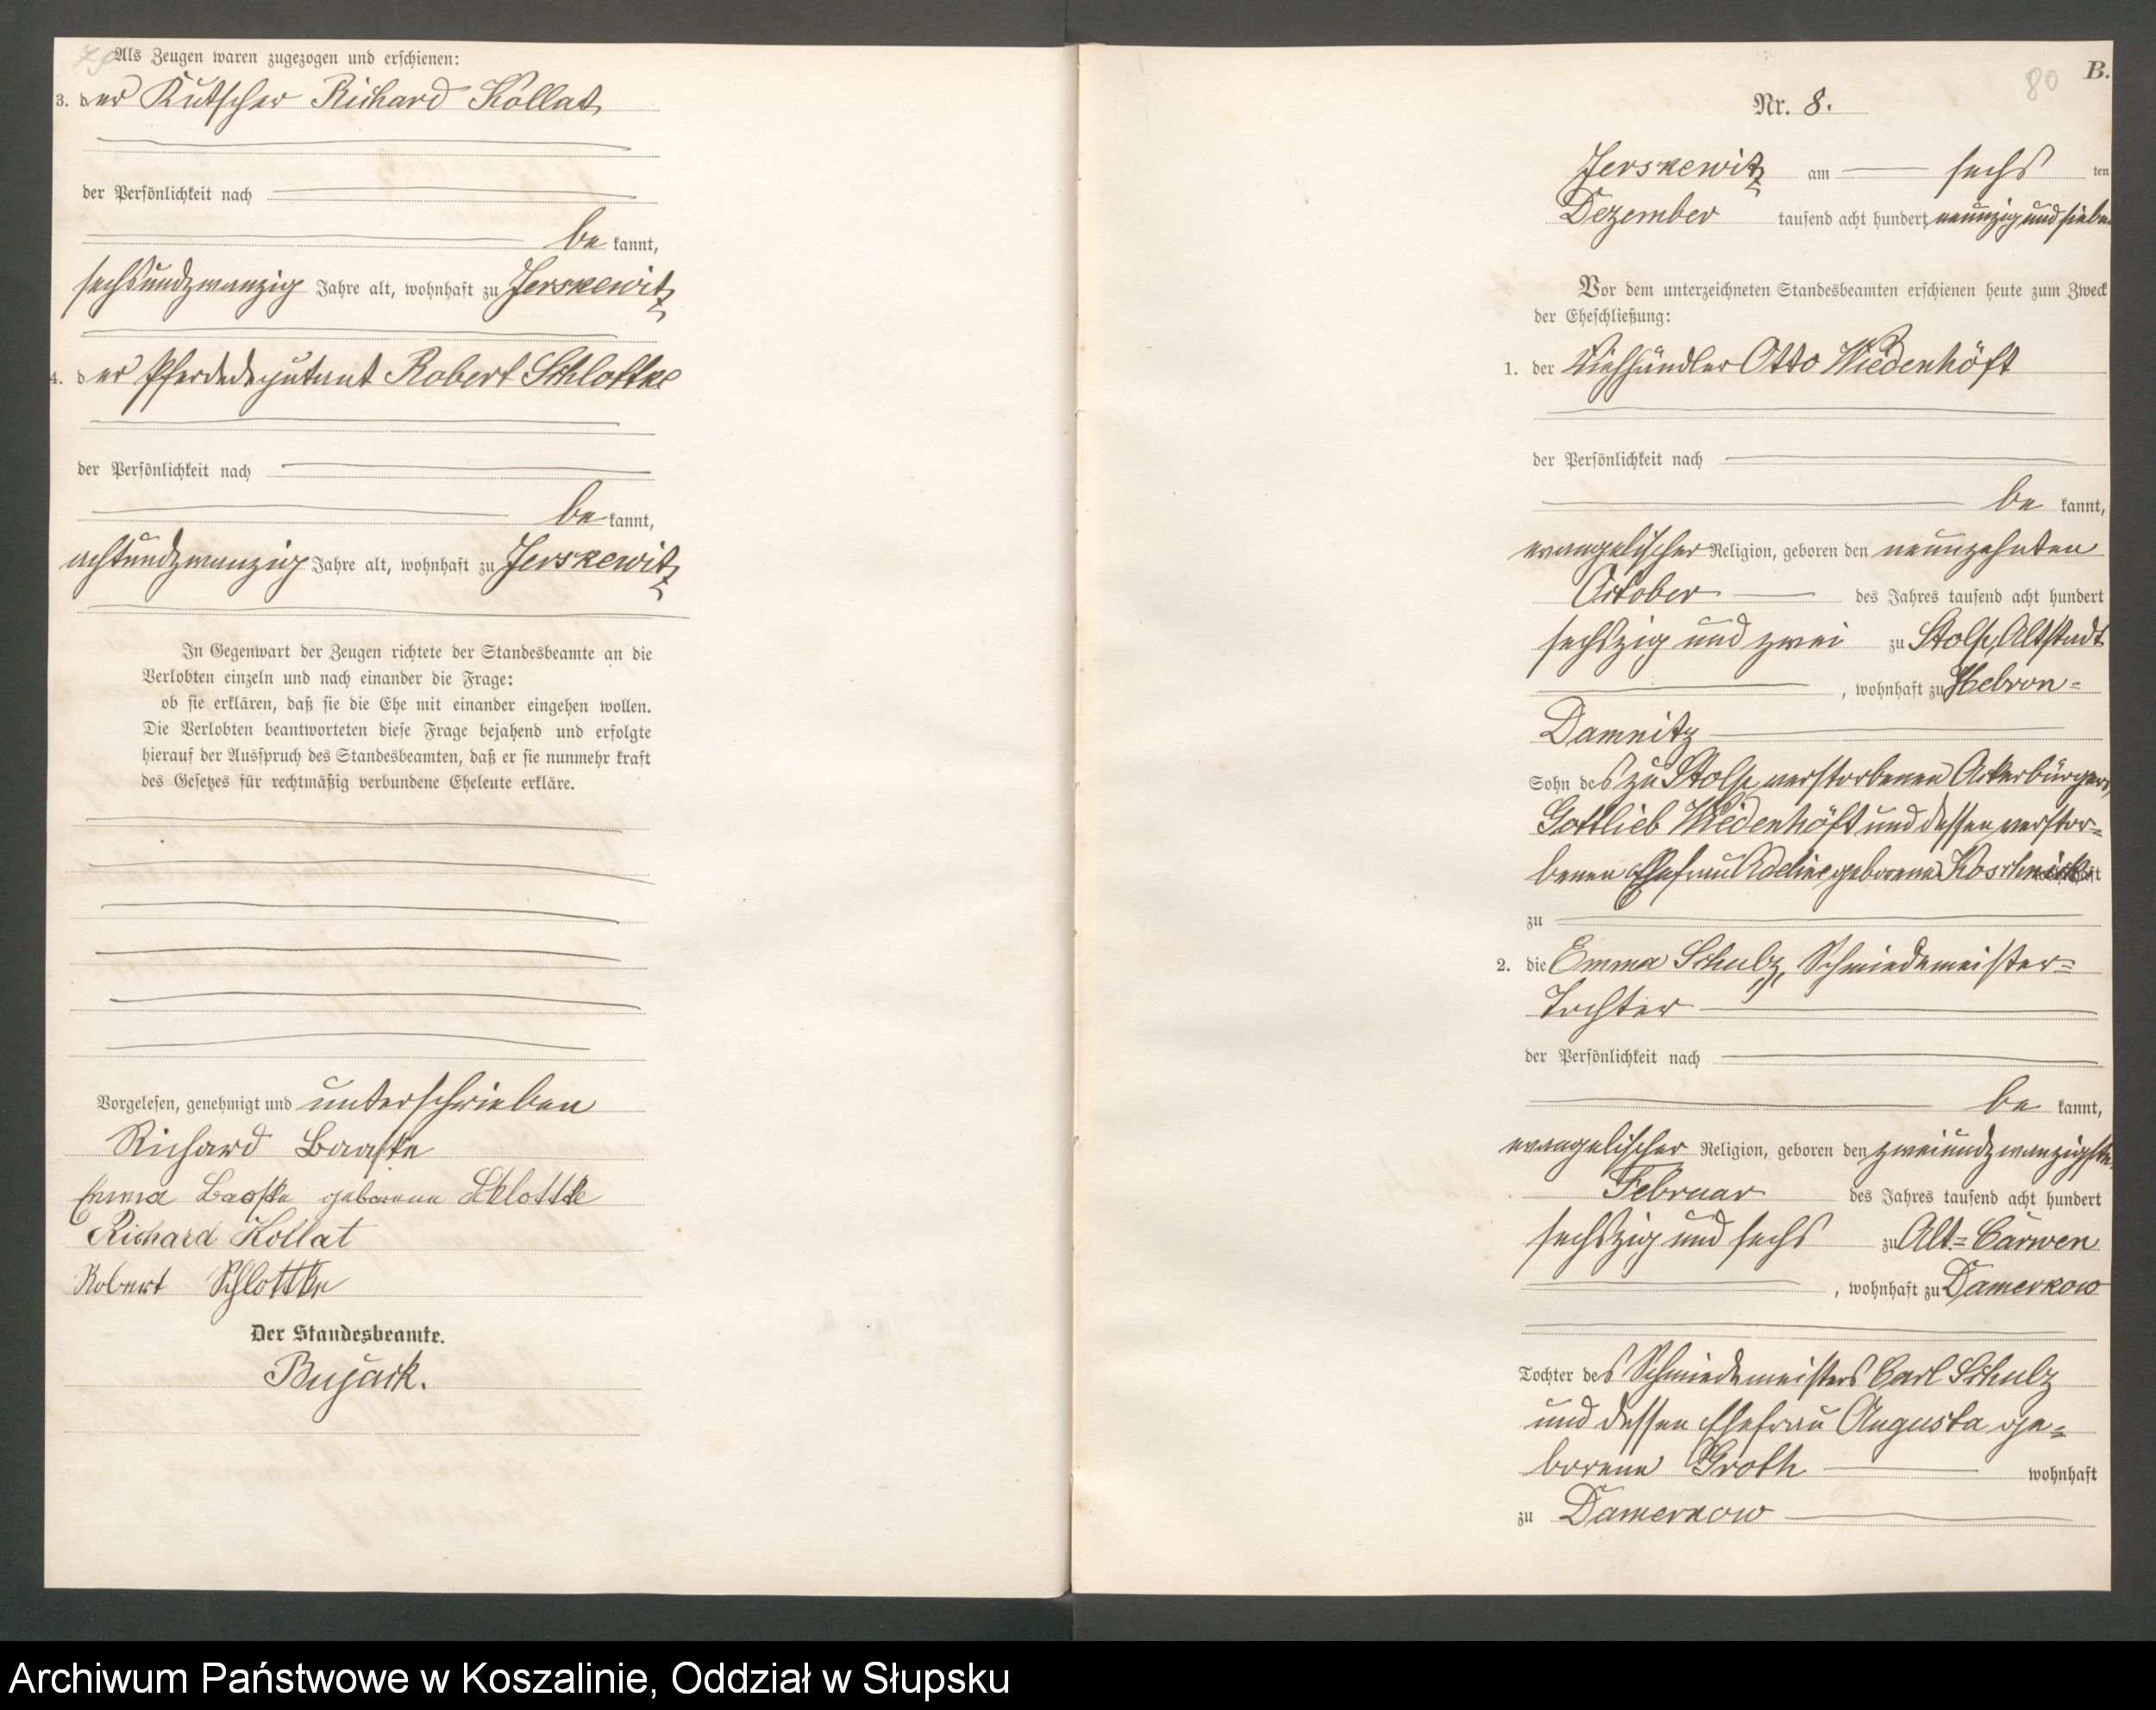 79
Als Zeugen waren zugezogen und erschienen:
3. der Kutscher Richard Kollat,
der Persönlichkeit nach
be kannt,
sechsundzwanzig Jahre alt, wohnhaft zu Jerskewitz
4. der Pferdedeputant Robert Schlottke
der Persönlichkeit nach
be kannt,
achtundzwanzig Jahre alt, wohnhaft zu Jerskewitz
In Gegenwart der Zeugen richtete der Standesbeamte an die
Verlobten einzeln und nach einander die Frage:
ob sie erklären, daß sie die Ehe mit einander eingehen wollen.
Die Verlobten beantworteten diese Frage bejahend und erfolgte
hierauf der Ausspruch des Standesbeamten, daß er sie nunmehr kraft
des Gesetzes für rechtmäßig verbundene Eheleute erkläre.
Vorgelesen, genehmigt und unterschrieben
Richard Baaske
Emma Baaske geborene Schlottke
Richard Kollat
Robert Schlottke
Der Standesbeamte.
Bujack.
80
B.
Nr. 8.
Jerskewitz am sechs ten
Dezember tausend acht hundert neunzig und sieben
Vor dem unterzeichneten Standesbeamten erschienen heute zum Zweck
der Eheschließung:
1. der Viehhändler Otto Wiedenhöft
der Persönlichkeit nach
be kannt,
evangelischer Religion, geboren den neunzehnten
October des Jahres tausend acht hundert
sechszig und zwei zu Stolp, Altstadt
, wohnhaft zu Hebron-
Damnitz
Sohn des zu Stolp verstorbenen Ackerbürgers,
Gottlieb Wiedenhöft und dessen verstor-
benen Ehefrau Adeline geborene Koschnick
zu
2. die Emma Schulz, Schmiedemeister-
Tochter
der Persönlichkeit nach
be kannt,
evangelischer Religion, geboren den zweiundzwanzigsten
Februar des Jahres tausend acht hundert
sechszig und sechs zu Alt-Carwen
, wohnhaft zu Damerkow
Tochter des Schmiedemeisters Carl Schulz
und dessen Ehefrau Augusta ge-
borene Groth wohnhaft
zu Damerkow
Archiwum Państwowe w Koszalinie, Oddział w Słupsku